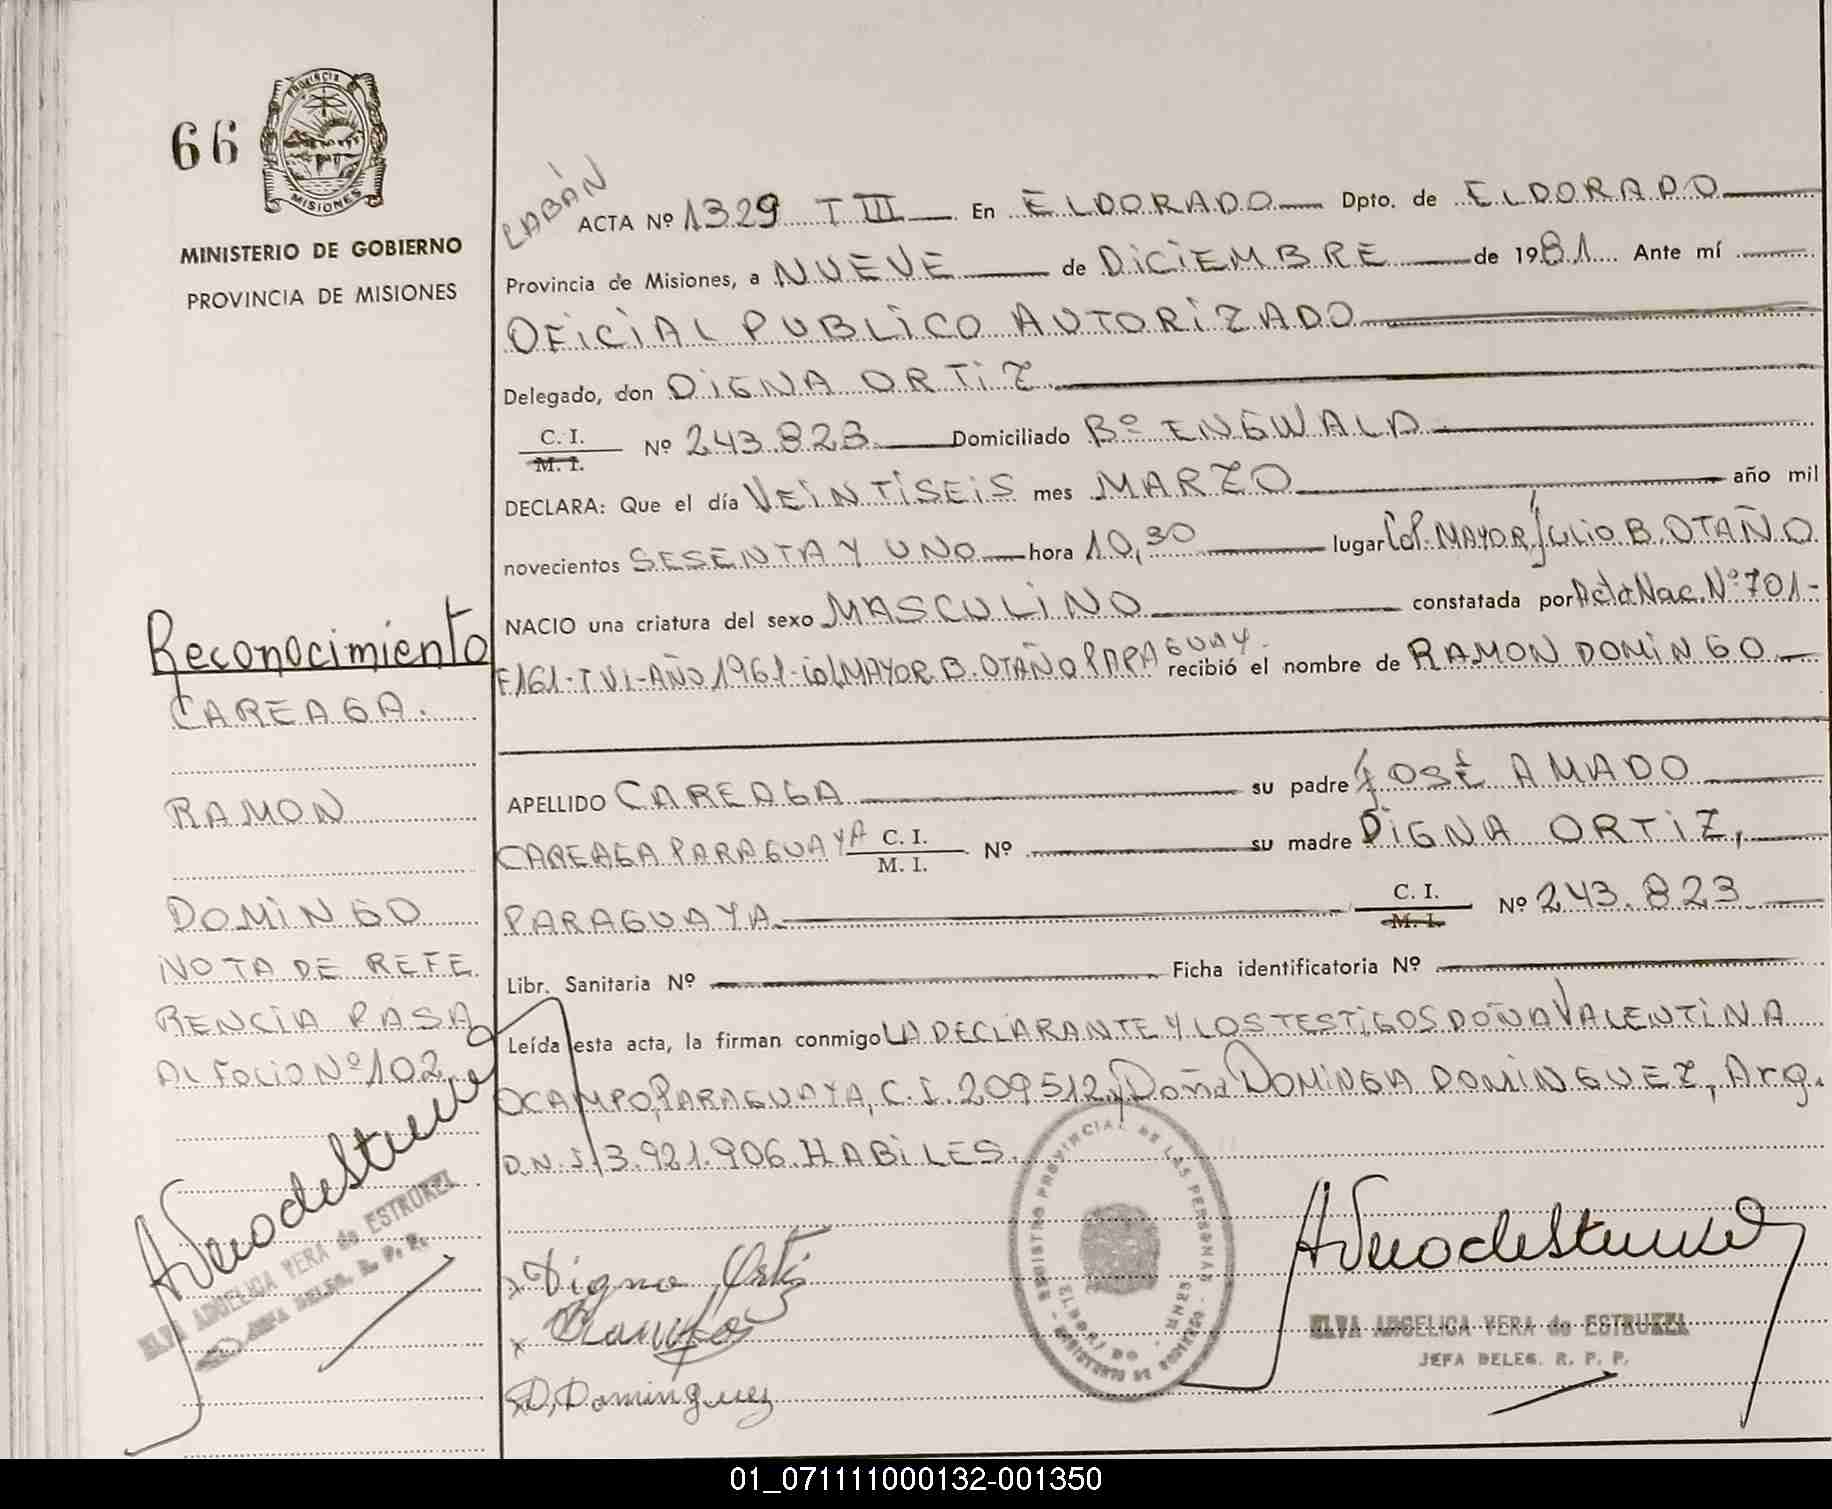 66
PROVINCIA
MISIONES
MINISTERIO DE GOBIERNO
PROVINCIA DE MISIONES
Reconocimiento
CAREAGA.
RAMON
DOMINGO
NOTA DE REFE
RENCIA PASA
AL FOLIO Nº 102
ELVA ANGELICA VERA de ESTRUKEL
JEFA DELEG. R. P. P.
LABÁN
ACTA Nº 1329 T III En ELDORADO Dpto. de ELDORADO
Provincia de Misiones, a NUEVE de DICIEMBRE de 1981 Ante mí
OFICIAL PUBLICO AUTORIZADO
Delegado, don DIGNA ORTIZ
C. I.
M. I.
Nº 243.823 Domiciliado Bº ENGWALD
DECLARA: Que el día VEINTISEIS mes MARZO año mil
novecientos SESENTA Y UNO hora 10,30 lugar Col. MAYOR JULIO B. OTAÑO
NACIO una criatura del sexo MASCULINO constatada por Acta Nac. Nº 701-
F161-T VI-AÑO 1961-Col MAYOR B. OTAÑO PARAGUAY. recibió el nombre de RAMON DOMINGO
APELLIDO CAREAGA su padre JOSÉ AMADO
CAREAGA PARAGUAYA C. I. Nº su madre DIGNA ORTIZ,
M. I.
PARAGUAYA C. I. Nº 243.823
M. I.
Libr. Sanitaria Nº Ficha identificatoria Nº
Leída esta acta, la firman conmigo LA DECLARANTE Y LOS TESTIGOS DOÑA VALENTINA
OCAMPO, PARAGUAYA, C. I. 209512 y Doña DOMINGA DOMINGUEZ, Arg.
D.N.I. 3.921.906. HABILES.
x Digna Ortiz
x
x D, Dominguez
REGISTRO PROVINCIAL DE LAS PERSONAS
ELDORADO
MISIONES
ELVA ANGELICA VERA de ESTRUKEL
JEFA DELEG. R. P. P.
01_071111000132-001350